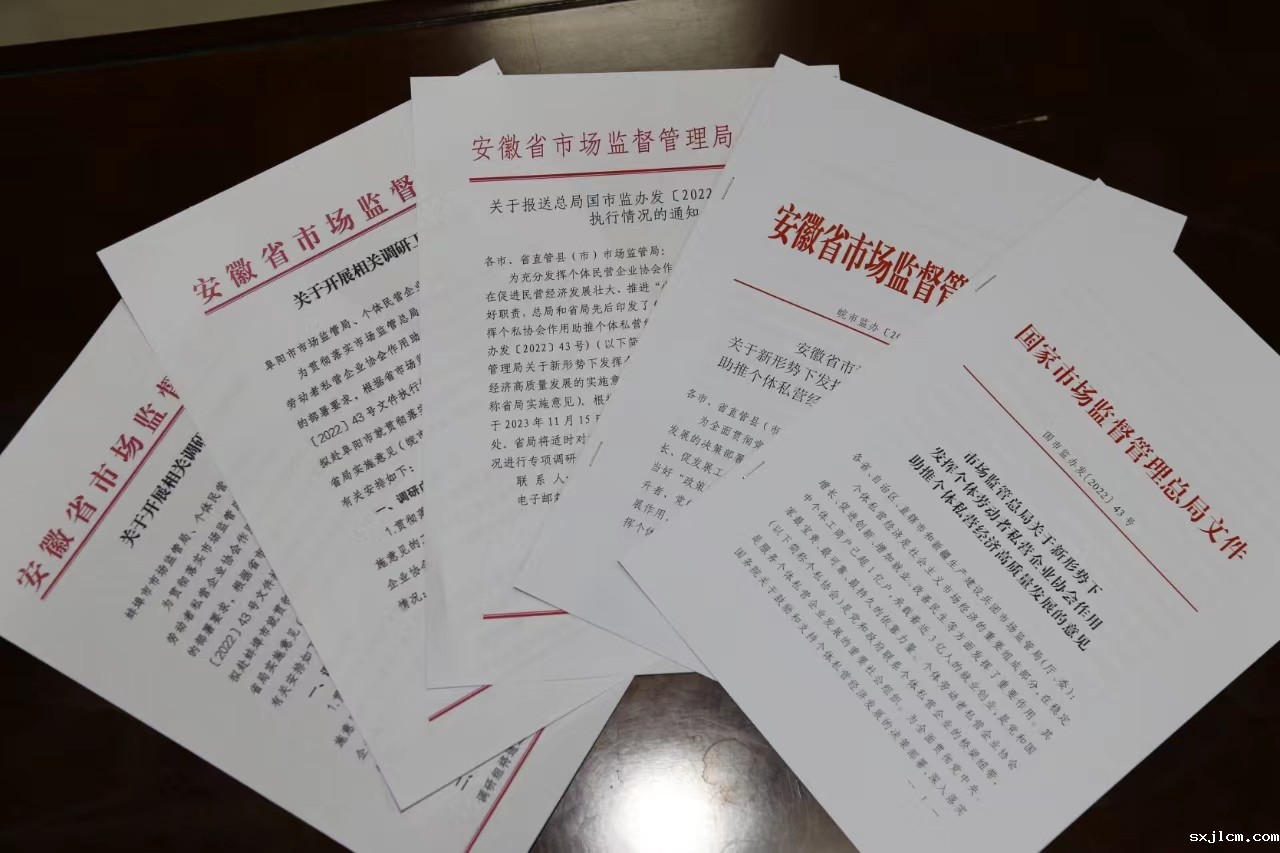 安徽省市场监督
关于开展相关调研
蚌埠市市场监管局、个体民营企
为贯彻落实市场监管总局
劳动者私营企业协会作
的部署要求，根据省市
〔2022〕43号文件
拟处蚌埠市就贯彻
省局实施意见
有关安排如下：
一、
1.
施意
企
调研组将
安徽省市场监督
关于开展相关调研工
阜阳市市场监管局、个体民营企业
为贯彻落实市场监管总局
劳动者私营企业协会作用助
的部署要求，根据省市场
〔2022〕43号文件执行
拟处阜阳市就贯彻落实
省局实施意见（皖市
有关安排如下：
一、调研
1.贯彻
施意见的
企业协会
情况：
安徽省市场监督管理局
关于报送总局国市监办发〔2022
执行情况的通知
各市、省直管县（市）市场监管局：
为充分发挥个体民营企业协会作
在促进民营经济发展壮大、推进“
好职责，总局和省局先后印发了《
挥个私协会作用助推个体私营
办发〔2022〕43号）（以下简
管理局关于新形势下发挥
经济高质量发展的实施意
称省局实施意见）。根
于2023年11月15日
处，省局将适时对
况进行专项调研
联系人
电子邮
安徽省市场监督管
皖市监办〔2
安徽省市
关于新形势下发挥
助推个体私营经
各市、省直管县（市
为全面贯彻
发展的决策部署
长、促发展工
当好“政策
升者，党
展作用，
挥个体
国家市场监督管理总局文件
国市监办发〔2022〕43号
市场监管总局关于新形势下
发挥个体劳动者私营企业协会作用
助推个体私营经济高质量发展的意见
各省、自治区、直辖市和新疆生产建设兵团市场监管局（厅、委）：
个体私营经济是社会主义市场经济的重要组成部分，在稳定
增长、促进创新、增加就业、改善民生等方面发挥了重要作用。其
中个体工商户已超1亿户，承载着近3亿人的就业创业，是党和国
家最宝贵、最可靠、最持久的依靠力量。个体劳动者私营企业协会
（以下简称个私协会）是党和政府联系个体私营企业的桥梁纽带，
是服务个体私营企业发展的重要社会组织。为全面贯彻党中央、
国务院关于鼓励和支持个体私营经济发展的决策部署，深入落实
— 1 —
sxjlcm.com